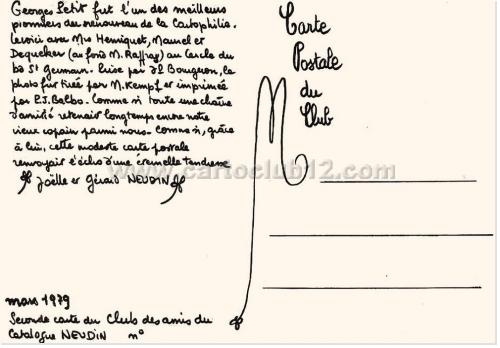 Georges Petit fut l'un des meilleurs
pionniers du renouveau de la Cartophilie.
Le voici avec Mrs Henriquet, Mancel et
Dequeker (au fond M. Raffray) au Cercle du
bd St Germain. Prise par J.L Bougeron, la
photo fut tirée par M. Kempf et imprimée
par P.J. Balbo. Comme si toute une chaîne
d'amitié retenait longtemps encore notre
vieux copain parmi nous. Comme si, grâce
à lui, cette modeste carte postale
renvoyait l'écho d'une éternelle tendresse
Joëlle et Gérard NEUDIN
mars 1979
Seconde carte du Club des amis du
Catalogue NEUDIN n°
Carte
Postale
du
Club
M
www.cartoclub12.com